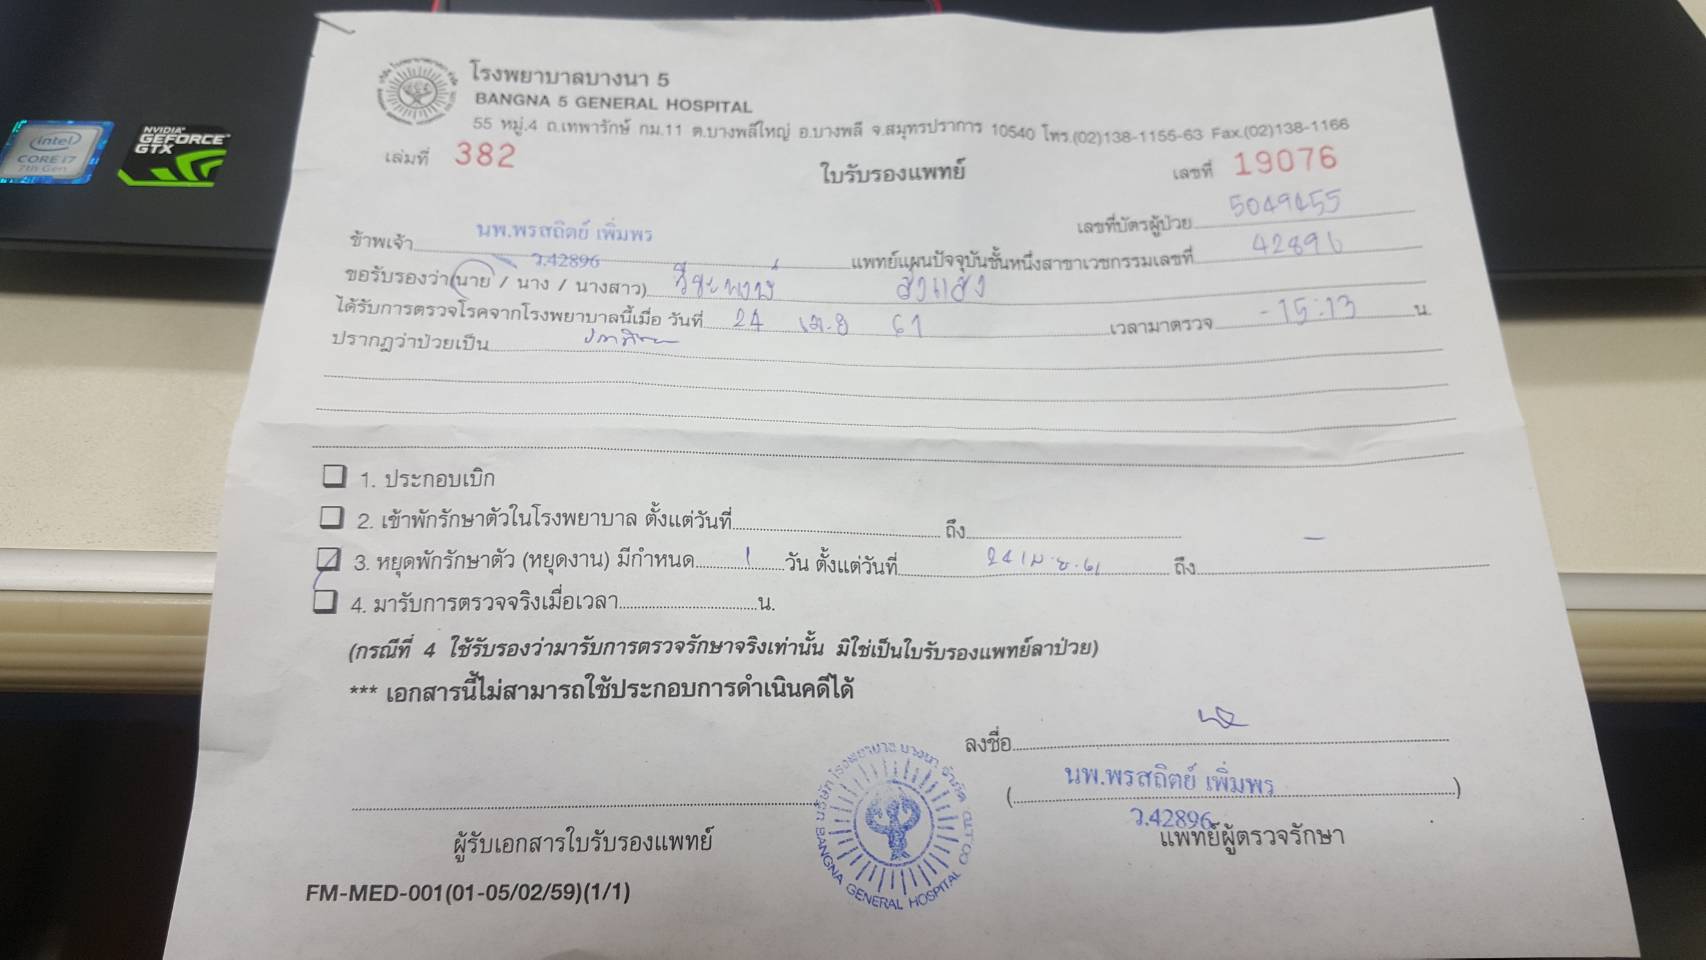 โรงพยาบาลบางนา 5
BANGNA 5 GENERAL HOSPITAL
55 หมู่.4 ถ.เทพารักษ์ กม.11 ต.บางพลีใหญ่ อ.บางพลี จ.สมุทรปราการ 10540 โทร.(02)138-1155-63 Fax.(02)138-1166
เล่มที่ 382 ใบรับรองแพทย์ เลขที่ 19076
เลขที่บัตรผู้ป่วย 5049455
ข้าพเจ้า นพ.พรสถิตย์ เพิ่มพร ว.42896 แพทย์แผนปัจจุบันชั้นหนึ่งสาขาเวชกรรมเลขที่ 42896
ขอรับรองว่า(นาย / นาง / นางสาว)
ได้รับการตรวจโรคจากโรงพยาบาลนี้เมื่อ วันที่ 24 เม.ย 61 เวลามาตรวจ - 15:13 น.
ปรากฏว่าป่วยเป็น
1. ประกอบเบิก
2. เข้าพักรักษาตัวในโรงพยาบาล ตั้งแต่วันที่ ถึง
3. หยุดพักรักษาตัว (หยุดงาน) มีกำหนด 1 วัน ตั้งแต่วันที่ 24 เม.ย. 61 ถึง -
4. มารับการตรวจจริงเมื่อเวลา น.
(กรณีที่ 4 ใช้รับรองว่ามารับการตรวจรักษาจริงเท่านั้น มิใช่เป็นใบรับรองแพทย์ลาป่วย)
*** เอกสารนี้ไม่สามารถใช้ประกอบการดำเนินคดีได้
ลงชื่อ
(นพ.พรสถิตย์ เพิ่มพร)
ว.42896
ผู้รับเอกสารใบรับรองแพทย์ แพทย์ผู้ตรวจรักษา
บริษัท โรงพยาบาล บางนา จำกัด
BANGNA GENERAL HOSPITAL CO.,LTD.
FM-MED-001(01-05/02/59)(1/1)
intel
CORE i7
7th Gen
NVIDIA
GEFORCE
GTX